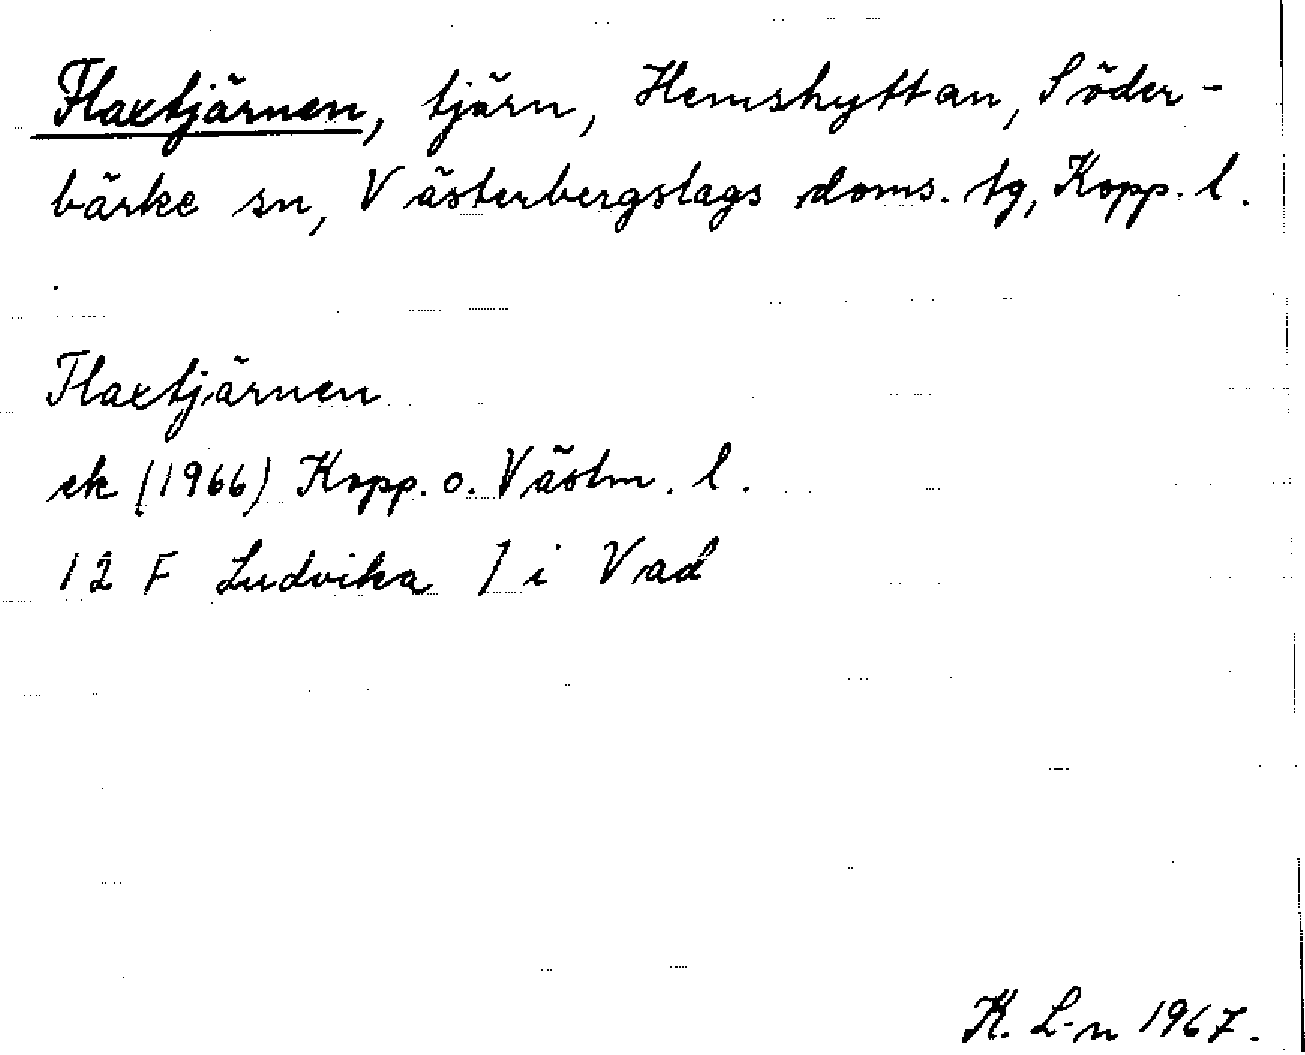 Flaxtjärnen, tjärn, Hemshyttan, Söder-
bärke sn, Västerbergslags doms. tg, Kopp. l.
Flaxtjärnen
ek (1966) Kopp. o. Västm. l.
12 F Ludvika J i Vad
K. L-n 1967.